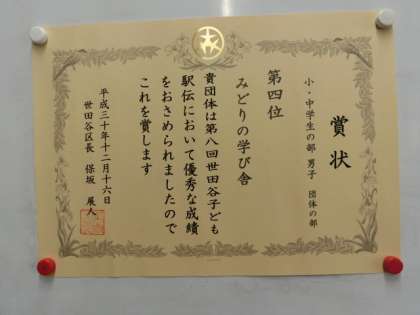 賞状
小・中学生の部 男子 団体の部
第四位
みどりの学び舎
貴団体は第八回世田谷子ども
駅伝において優秀な成績
をおさめられましたので
これを賞します
平成三十年十二月十六日
世田谷区長 保坂 展人